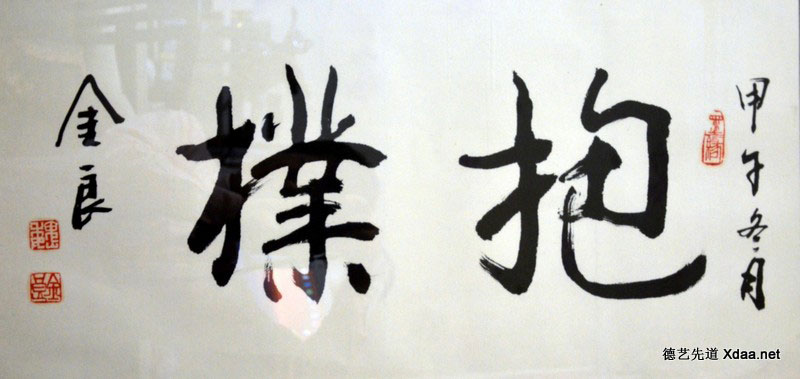 甲午冬月
抱樸
金良
德艺先道 Xdaa.net